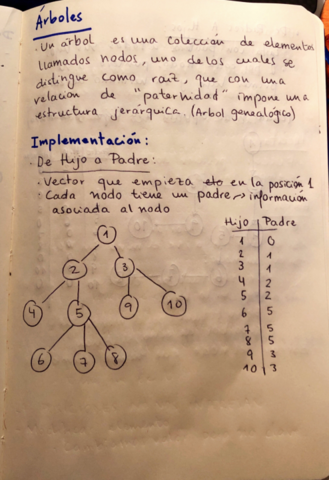 Árboles
· Un árbol es una colección de elementos
llamados nodos, uno de los cuales se
distingue como raíz, que con una
relación de "paternidad" impone una
estructura jerárquica. (Arbol genealógico)
Implementación:
· De Hijo a Padre:
· Vector que empieza en la posición 1
· Cada nodo tiene un padre → información
asociada al nodo
Hijo | Padre
1 0
2 1
3 1
4 2
5 2
6 5
7 5
8 5
9 3
10 3
1
2 3
4 5 9 10
6 7 8